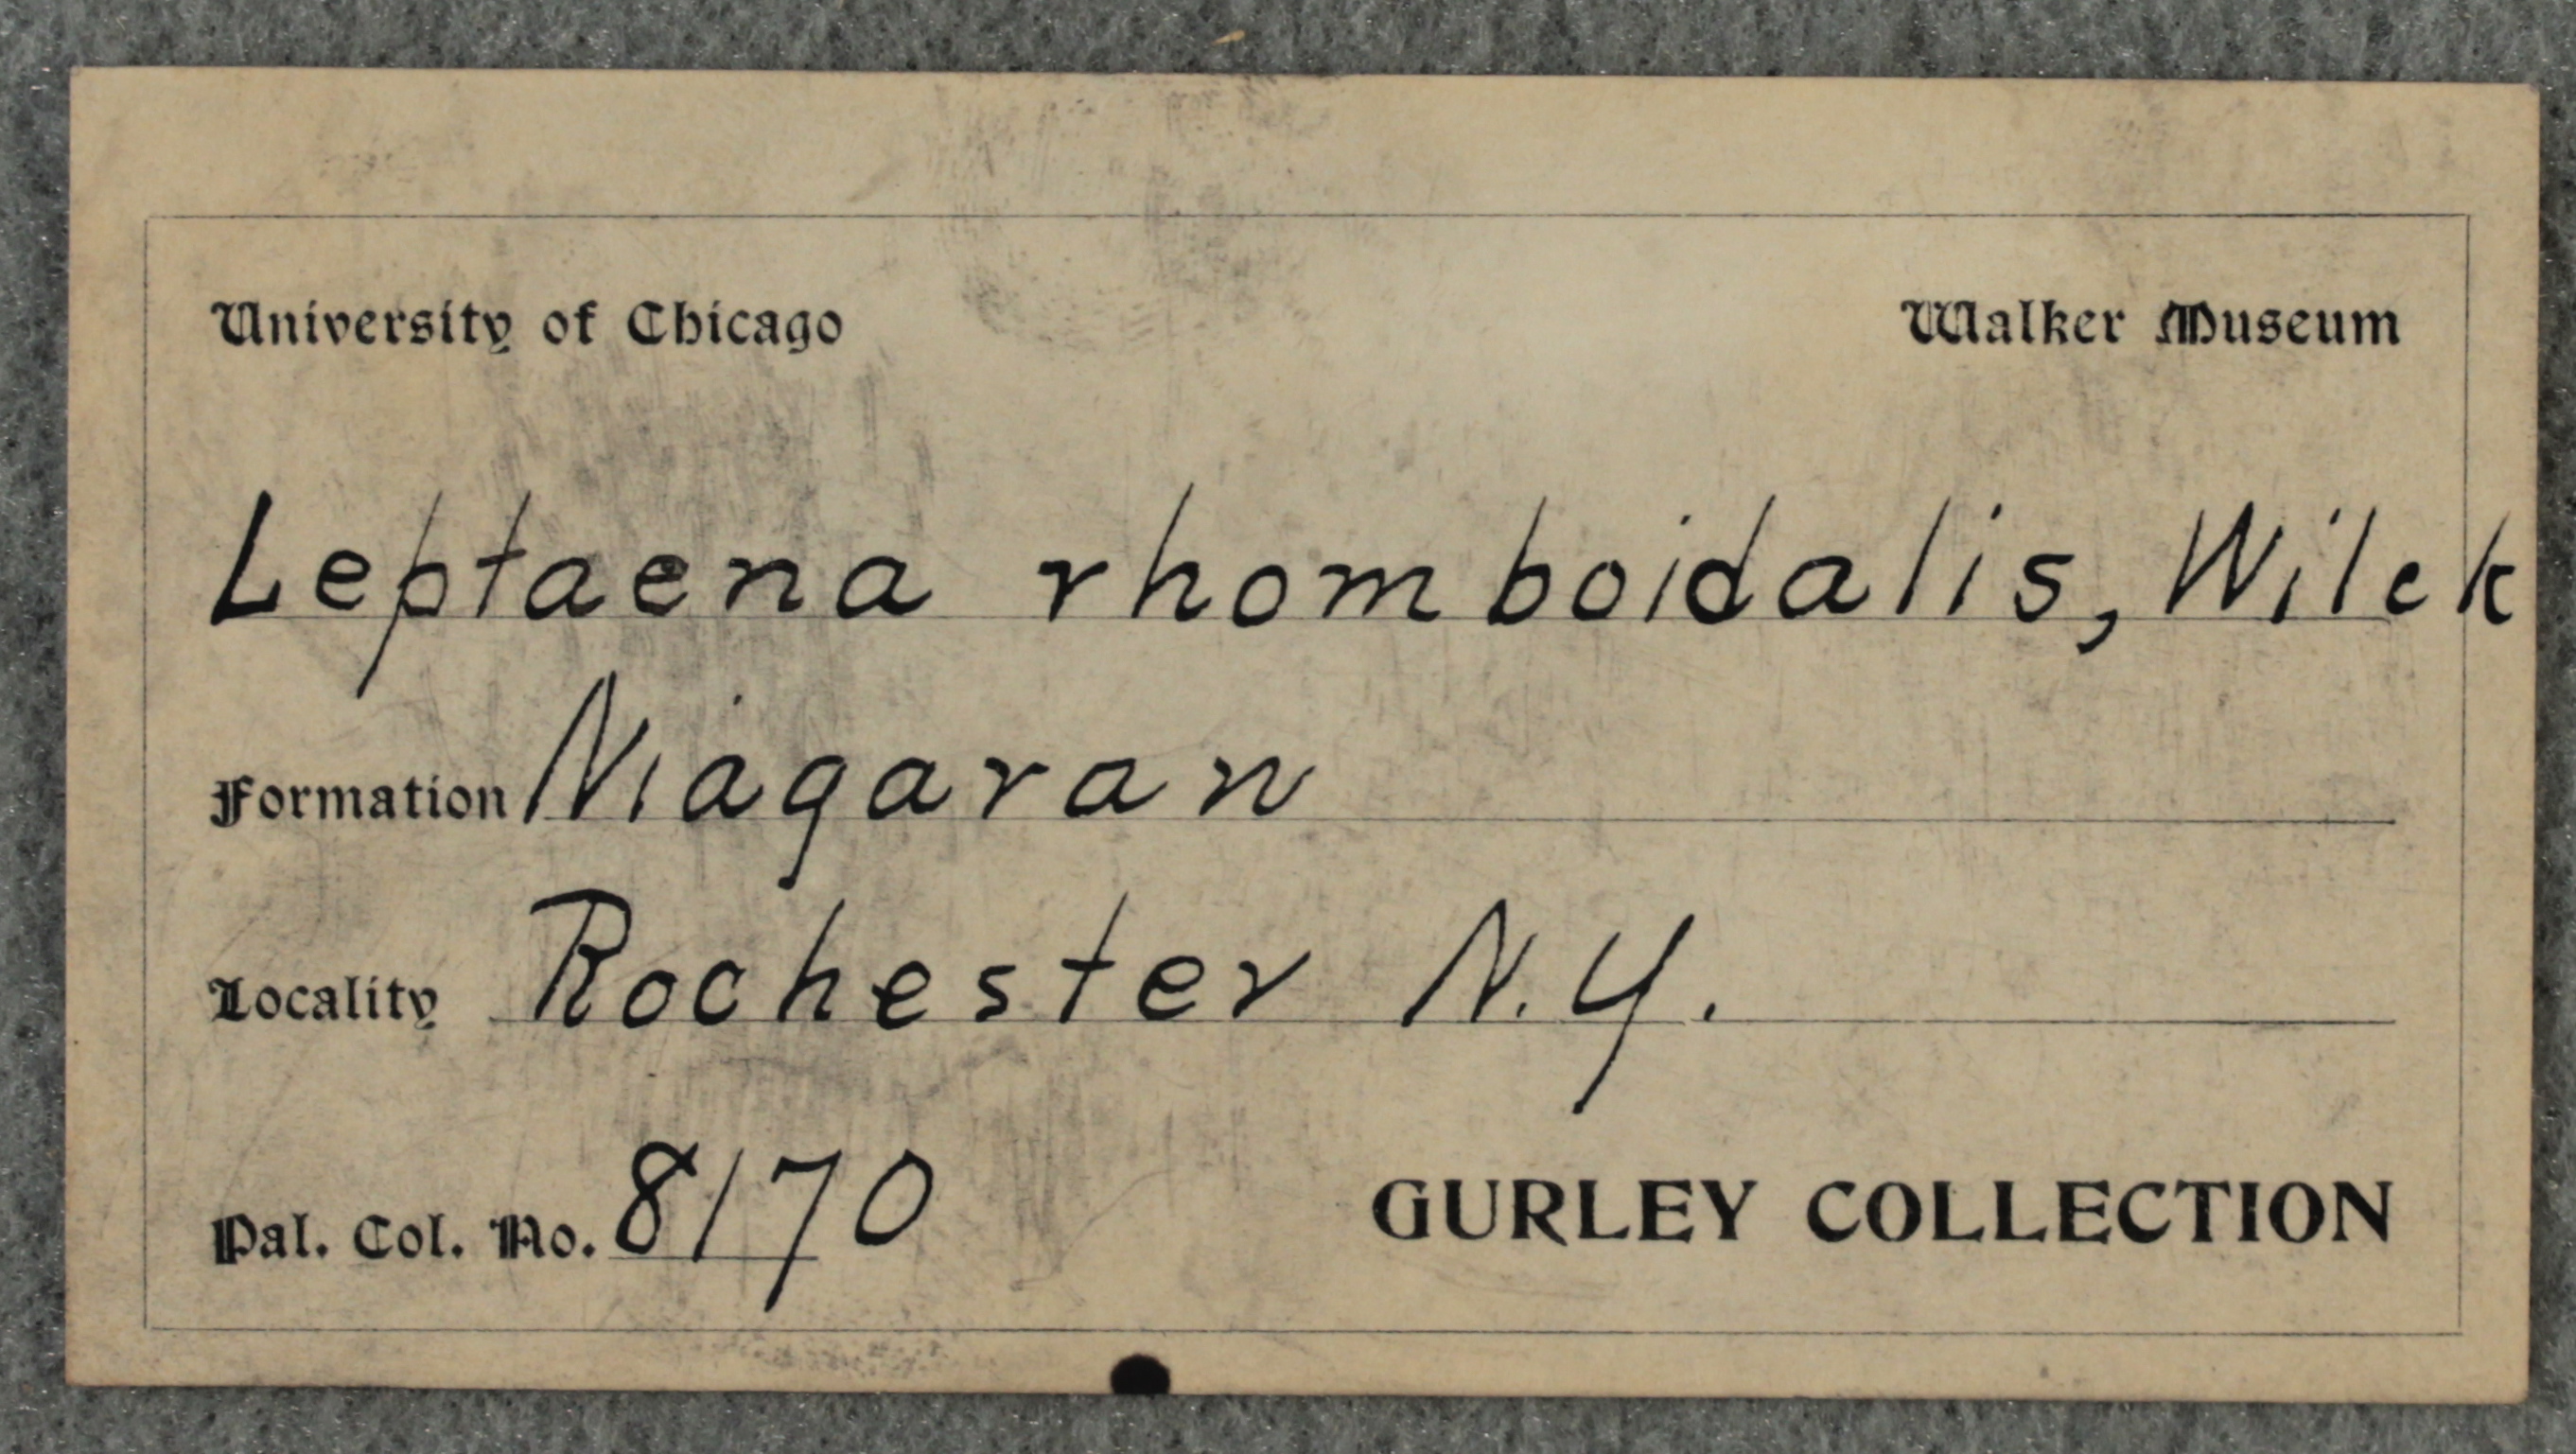 University of Chicago Walker Museum
Leptaena rhomboidalis, Wilck
Formation Niagaran
Locality Rochester N.Y.
Pal. Col. No. 8170 GURLEY COLLECTION